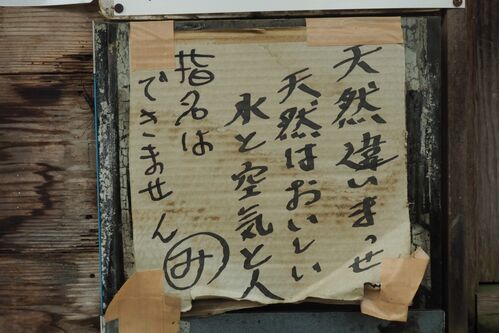 天然違いまっせ
天然はおいしい
水と空気と人
み
指名は
できません